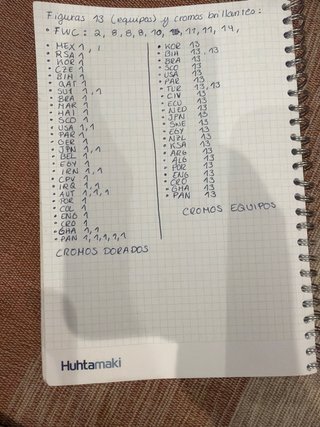 Figuras 13 (equipos) y cromos brillantes:
FWC: 2, 8, 8, 8, 10, 11, 11, 14,
• MEX 1, 1
• RSA 1
• KOR 1
• CZE 1
• BIH 1
• QAT 1
• SUI 1, 1
• BRA 1
• MAR 1
• HAI 1
• SCO 1
• USA 1, 1
• PAR 1
• GER 1
• JPN 1, 1
• BEL 1
• EGY 1
• IRN 1, 1
• CPV 1
• IRQ 1, 1
• AUT 1, 1, 1
• POR 1
• COL 1
• ENG 1
• CRO 1
• GHA 1, 1
• PAN 1, 1, 1, 1, 1
CROMOS DORADOS
• KOR 13
• BIH 13, 13
• BRA 13
• SCO 13
• USA 13
• PAR 13
• TUR 13, 13
• CIV 13
• ECU 13
• NED 13
• JPN 13
• SNE 13
• EGY 13
• NZL 13
• KSA 13
• ARG 13
• ALG 13
• POR 13
• ENG 13
• CRO 13
• GHA 13
• PAN 13
CROMOS EQUIPOS
Huhtamaki